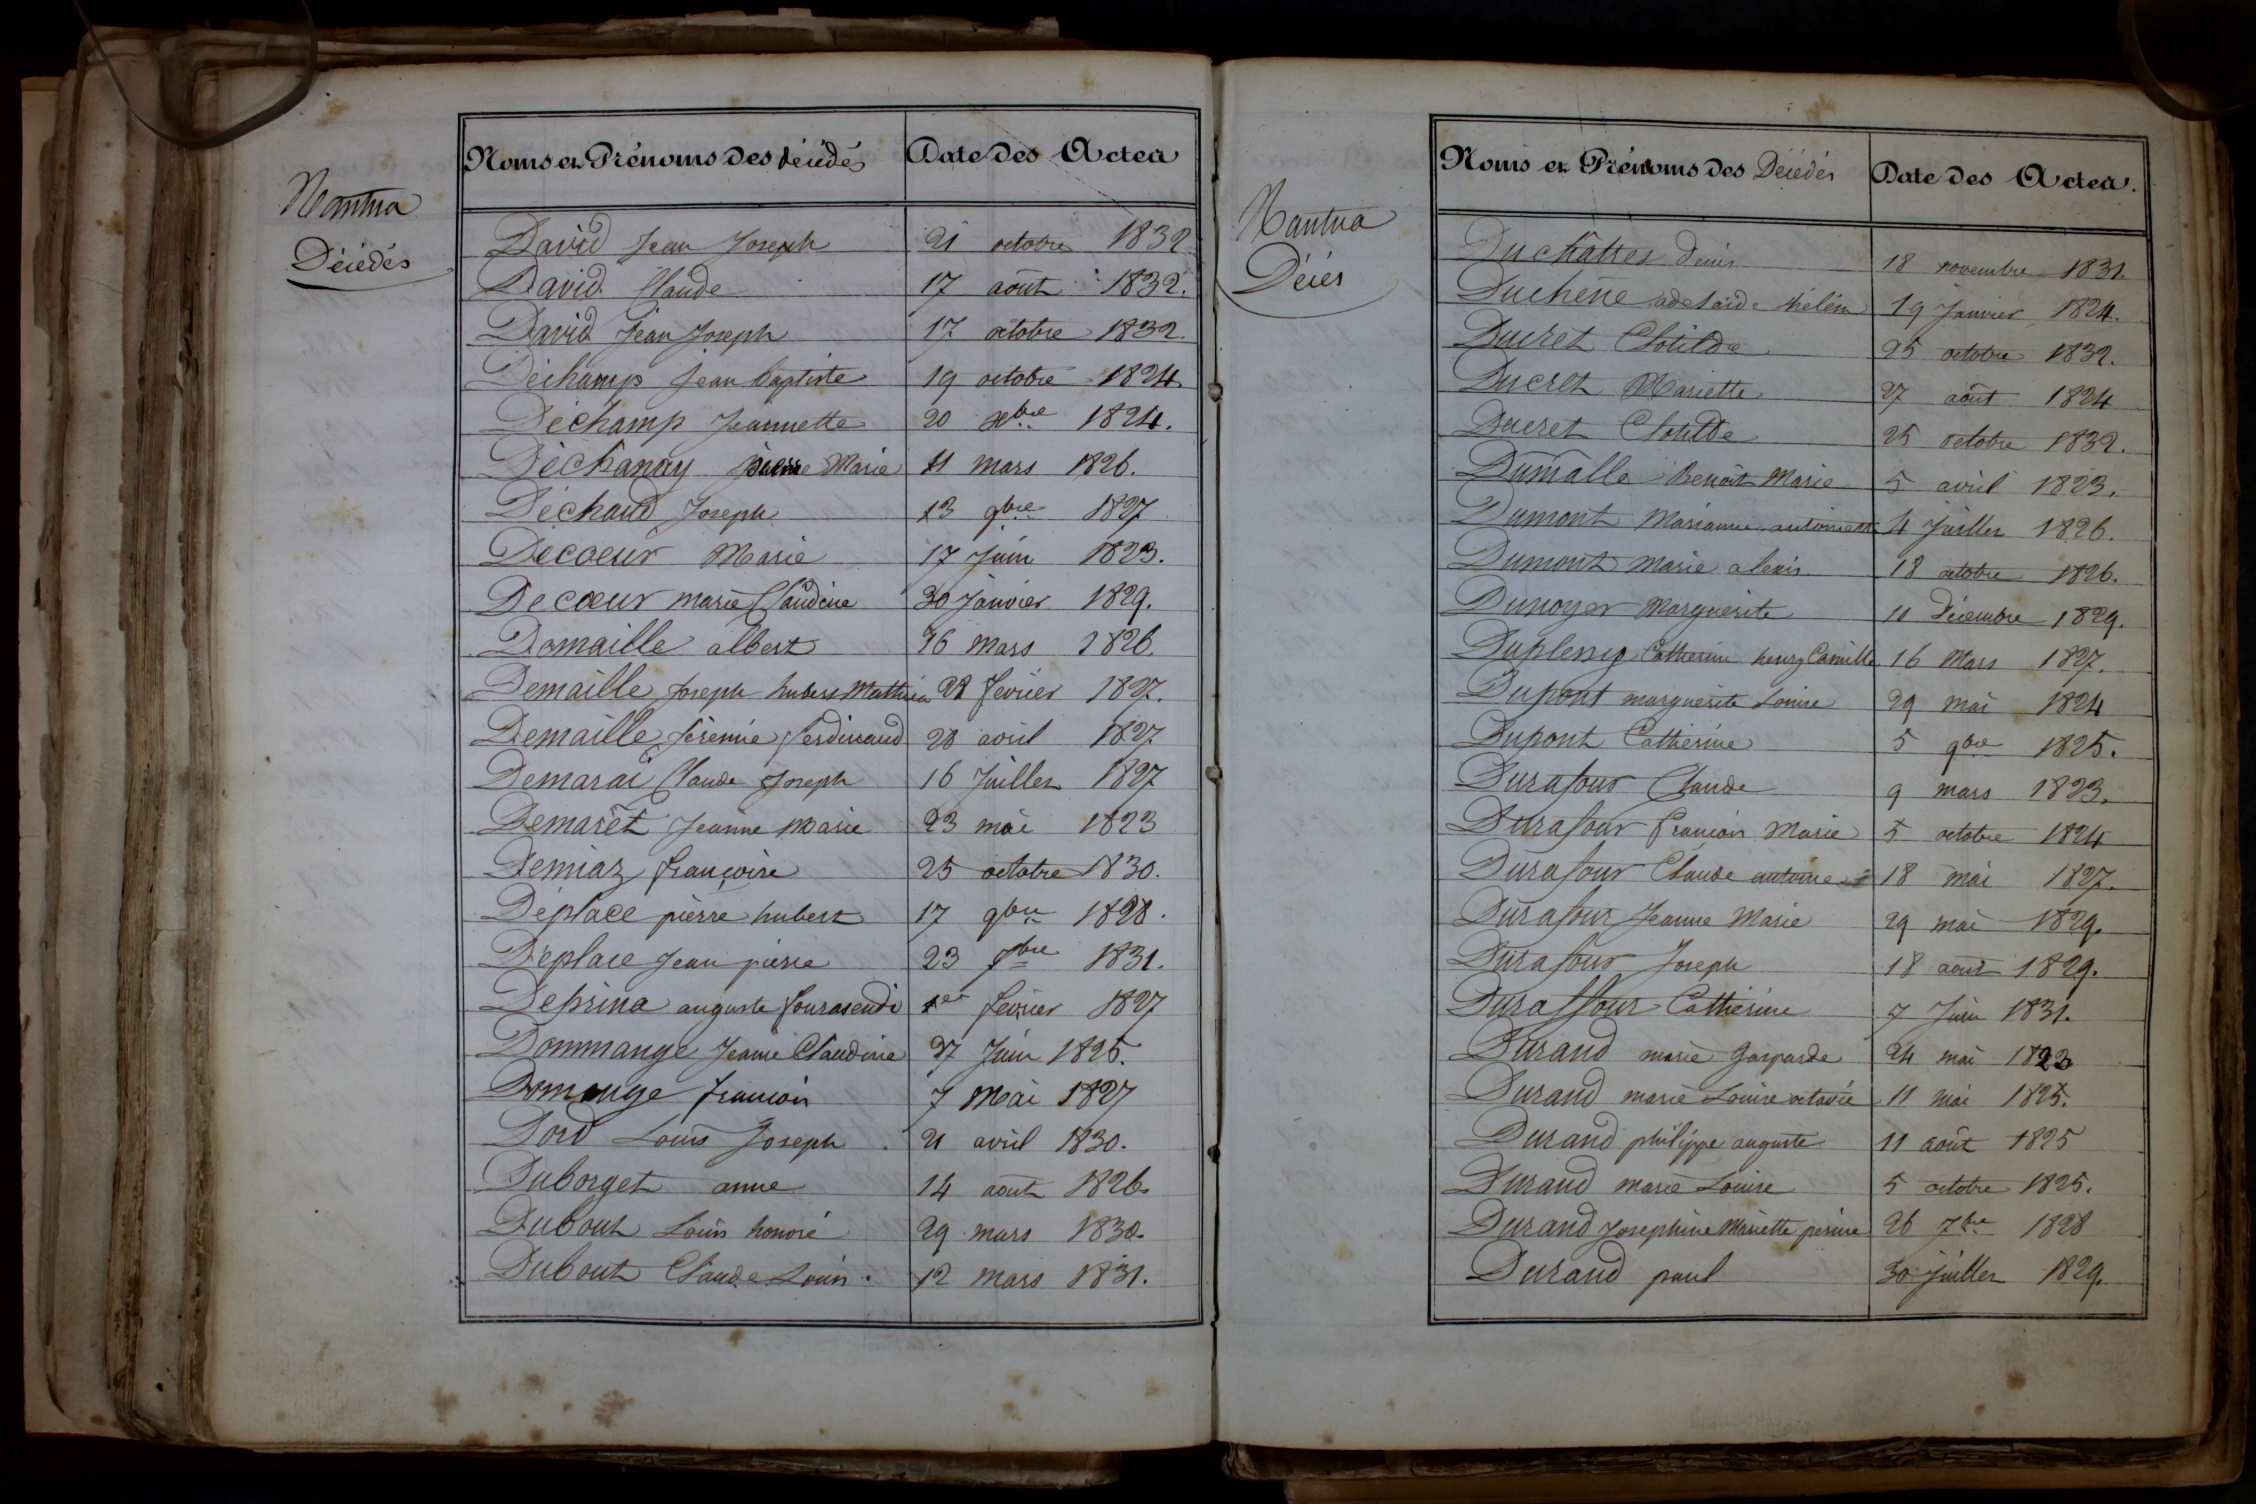 Noms et Prénoms des décédés Date des Actes
Nantua
Décédés
David Jean Joseph 21 octobre 1832
David Claude 17 août 1832.
David Jean Joseph 17 octobre 1832.
Déchamp Jean baptiste 19 octobre 1824
Déchamp Jeannette 20 xbre 1824.
Déchanay Marie 11 mars 1826.
Déchaud Joseph 13 9bre 1827
Decoeur Marie 17 Juin 1823.
Decoeur marie Claudine 30 Janvier 1829.
Demaille albert 16 mars 1826.
Demaille Joseph hubert Mathieu 28 fevrier 1827.
Demaille Jérémie ferdinand 28 avril 1827
Demarai Claude Joseph 16 Juillet 1827
Demaret Jeanne Marie 23 mai 1823
Demiaz françoise 25 octobre 1830.
Déplace pierre hubert 17 9bre 1828.
Déplace Jean pierre 23 7bre 1831.
Deprina auguste 1er fevrier 1827
Dommange Jeanne Claudine 27 Juin 1825.
Domange francois 7 Mai 1827
Dord Louis Joseph 21 avril 1830.
Duborget anne 14 août 1826
Dubout Louis honoré 29 mars 1830.
Dubout Claude Louis. 12 mars 1831.
Noms et Prénoms des Décédés Date des Actes.
Nantua
Décés
Duchattes Denis 18 novembre 1831
Duchêne adelaïde hélène 19 Janvier 1824.
Ducret Clotilde 25 octobre 1832.
Ducret Mariette 27 août 1824
Ducret Clotilde 25 octobre 1832.
Dumalle Benoit Marie 5 avril 1823.
Dumont Marianne antoinette 4 Juillet 1826.
Dumont marie alexis 18 octobre 1826.
Dunoyer Marguerite 11 Décembre 1829.
Duplessy Catherine henry Camille 16 Mars 1827.
Dupont marguerite Louise 29 mai 1824
Dupont Catherine 5 9bre 1825.
Durafour Claude 9 mars 1823.
Durafour francois Marie 5 octobre 1824
Durafour Claude antoine 18 mai 1827.
Durafour Jeanne Marie 29 mai 1829.
Durafour Joseph 18 août 1829.
Duraffour Catherine 7 Juin 1831.
Durand marie Gasparde 24 mai 1823
Durand marie Louise octavie 11 mai 1825.
Durand philippe auguste 11 août 1825
Durand marie Louise 5 octobre 1825.
Durand Josephine Mariette perine 26 7bre 1828
Durand paul 30 Juillet 1829.